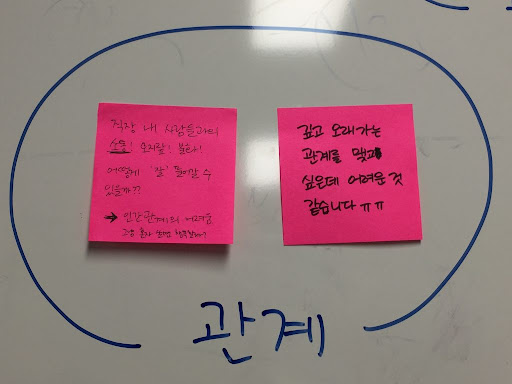 직장 내 사람들과의
소통! 오지랖! 불화!
어떻게 '잘' 풀어갈 수
있을까??
→ 인간관계의 어려움
그냥 혼자 살면 행복할까?
깊고 오래가는
관계를 맺고
싶은데 어려운 것
같습니다 ㅠㅠ
관계